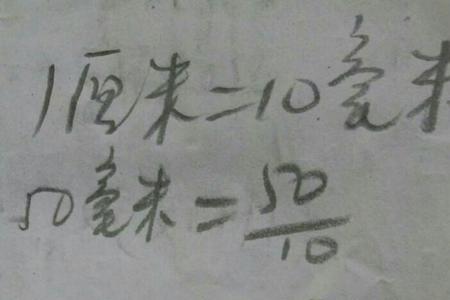 1厘米=10毫米
50毫米=50/10